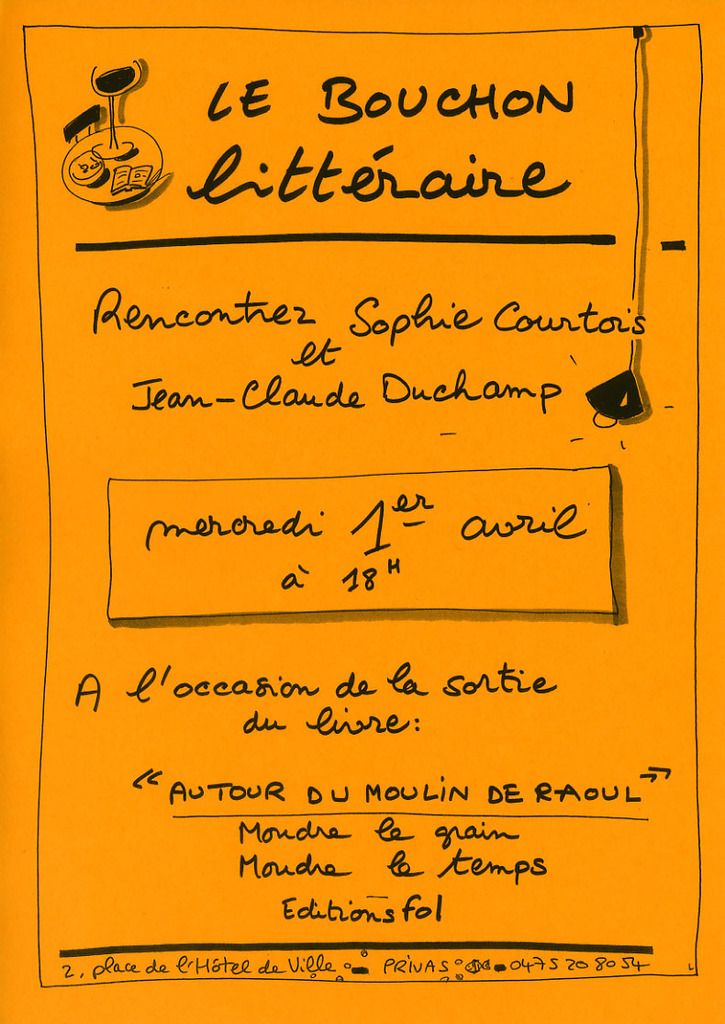 LE BOUCHON
littéraire
Rencontrez Sophie Courtois
et
Jean-Claude Duchamp
mercredi 1er avril
à 18H
A l'occasion de la sortie
du livre:
"AUTOUR DU MOULIN DE RAOUL"
Moudre le grain
Moudre le temps
Editions fol
2, place de l'Hôtel de Ville - PRIVAS - 04 75 20 80 54